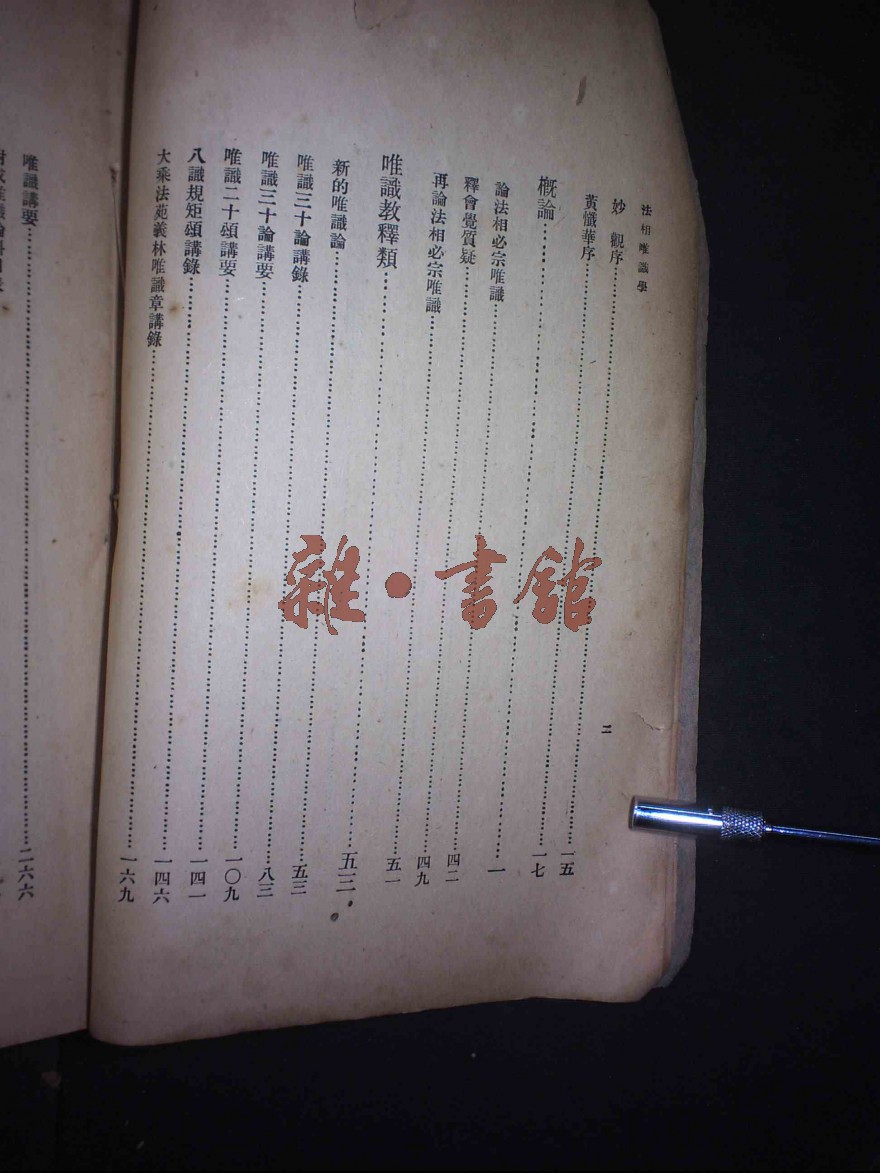 法相唯識學
妙觀序……一五
黃懺華序……一七
概論……一
論法相必宗唯識……四二
釋會覺質疑……四九
再論法相必宗唯識……五一
唯識教釋類……五三
新的唯識論……五三
唯識三十論講錄……八三
唯識三十論講要……一〇九
唯識二十頌講要……一四一
八識規矩頌講錄……一四六
大乘法苑義林唯識章講錄……一六九
二
唯識講要……二六六
雜·書館